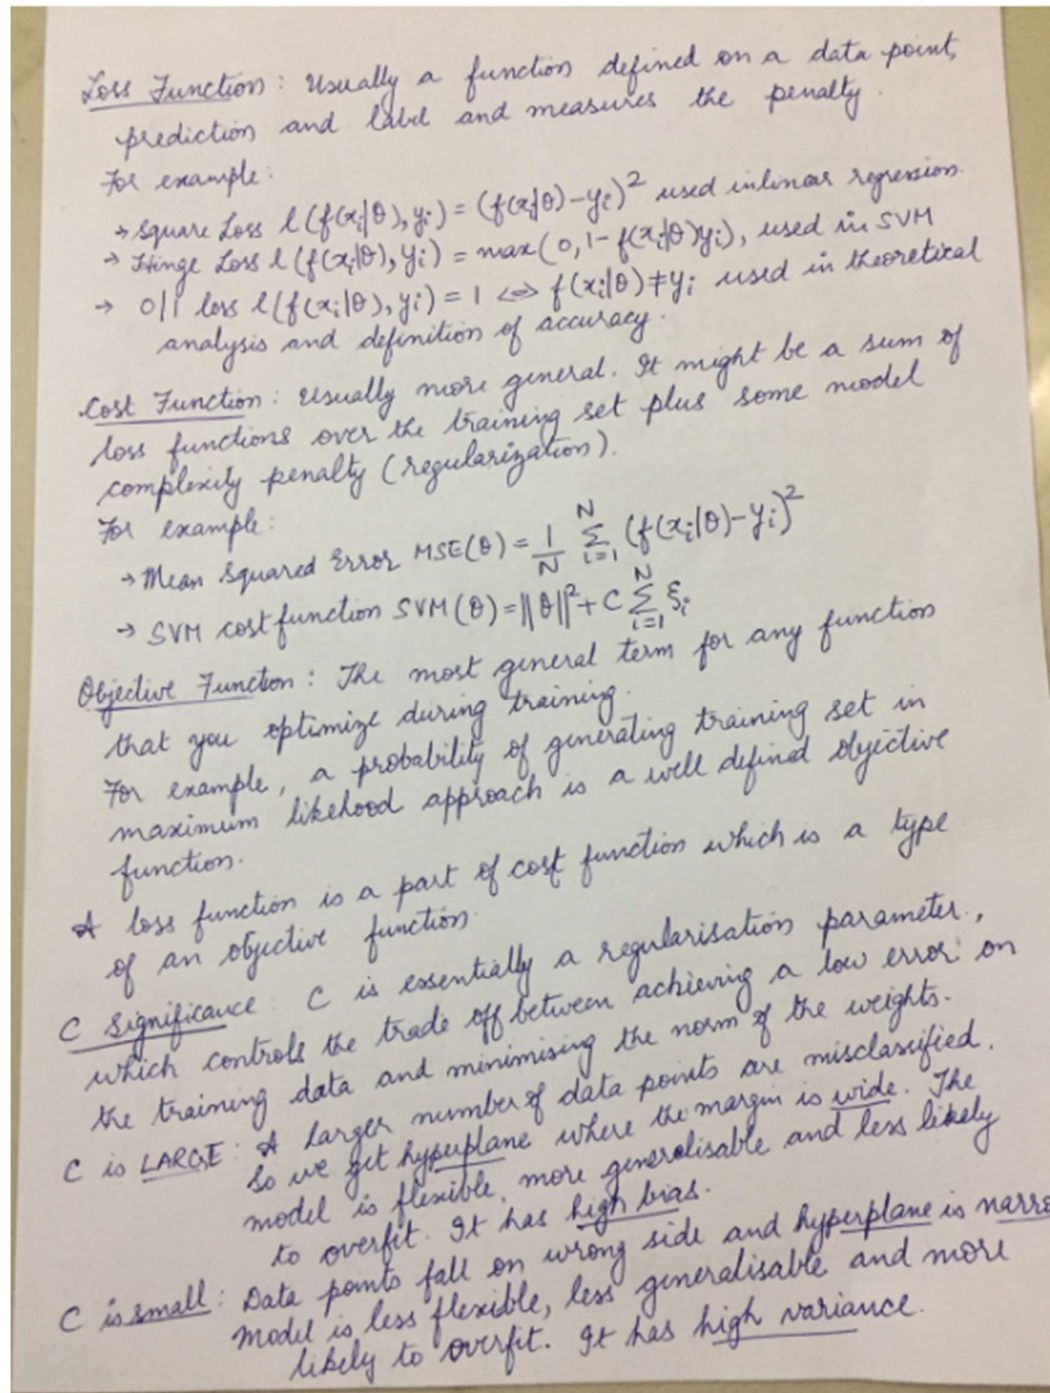 Loss Function : Usually a function defined on a data point,
prediction and label and measures the penalty.
For example:
→ Square Loss l(f(xi|θ), yi) = (f(xi|θ) - yi)² used in linear regression.
→ Hinge Loss l(f(xi|θ), yi) = max(0, 1 - f(xi|θ)yi), used in SVM
→ 0/1 loss l(f(xi|θ), yi) = 1 ⇔ f(xi|θ) ≠ yi used in theoretical
analysis and definition of accuracy.
Cost Function : Usually more general. It might be a sum of
loss functions over the training set plus some model
complexity penalty (regularization).
For example:
→ Mean Squared Error MSE(θ) = 1/N Σ_{i=1}^{N} (f(xi|θ) - yi)²
→ SVM cost function SVM(θ) = ||θ||² + C Σ_{i=1}^{N} ξi
Objective Function : The most general term for any function
that you optimize during training.
For example, a probability of generating training set in
maximum likehood approach is a well defined objective
function.
A loss function is a part of cost function which is a type
of an objective function.
C Significance : C is essentially a regularisation parameter,
which controls the trade off between achieving a low error on
the training data and minimising the norm of the weights.
C is LARGE : A larger number of data points are misclassified.
So we get hyperplane where the margin is wide. The
model is flexible, more generalisable and less likely
to overfit. It has high bias.
C is small : Data points fall on wrong side and hyperplane is narro
Model is less flexible, less generalisable and more
likely to overfit. It has high variance.